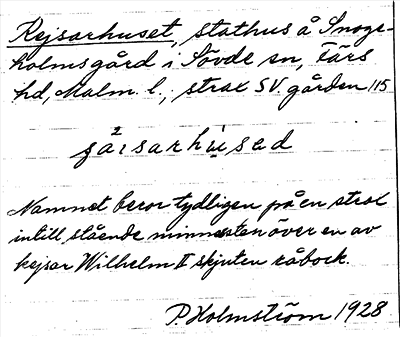 Kejsarhuset, stathus å Snoge-
holmsgård i Sövde sn, Färs
hd, Malm. l., strax SV. gården 115
Namnet beror tydligen på en strax
intill stående minnesten över en av
kejsar Wilhelm II skjuten råbock.
P. Holmström 1928